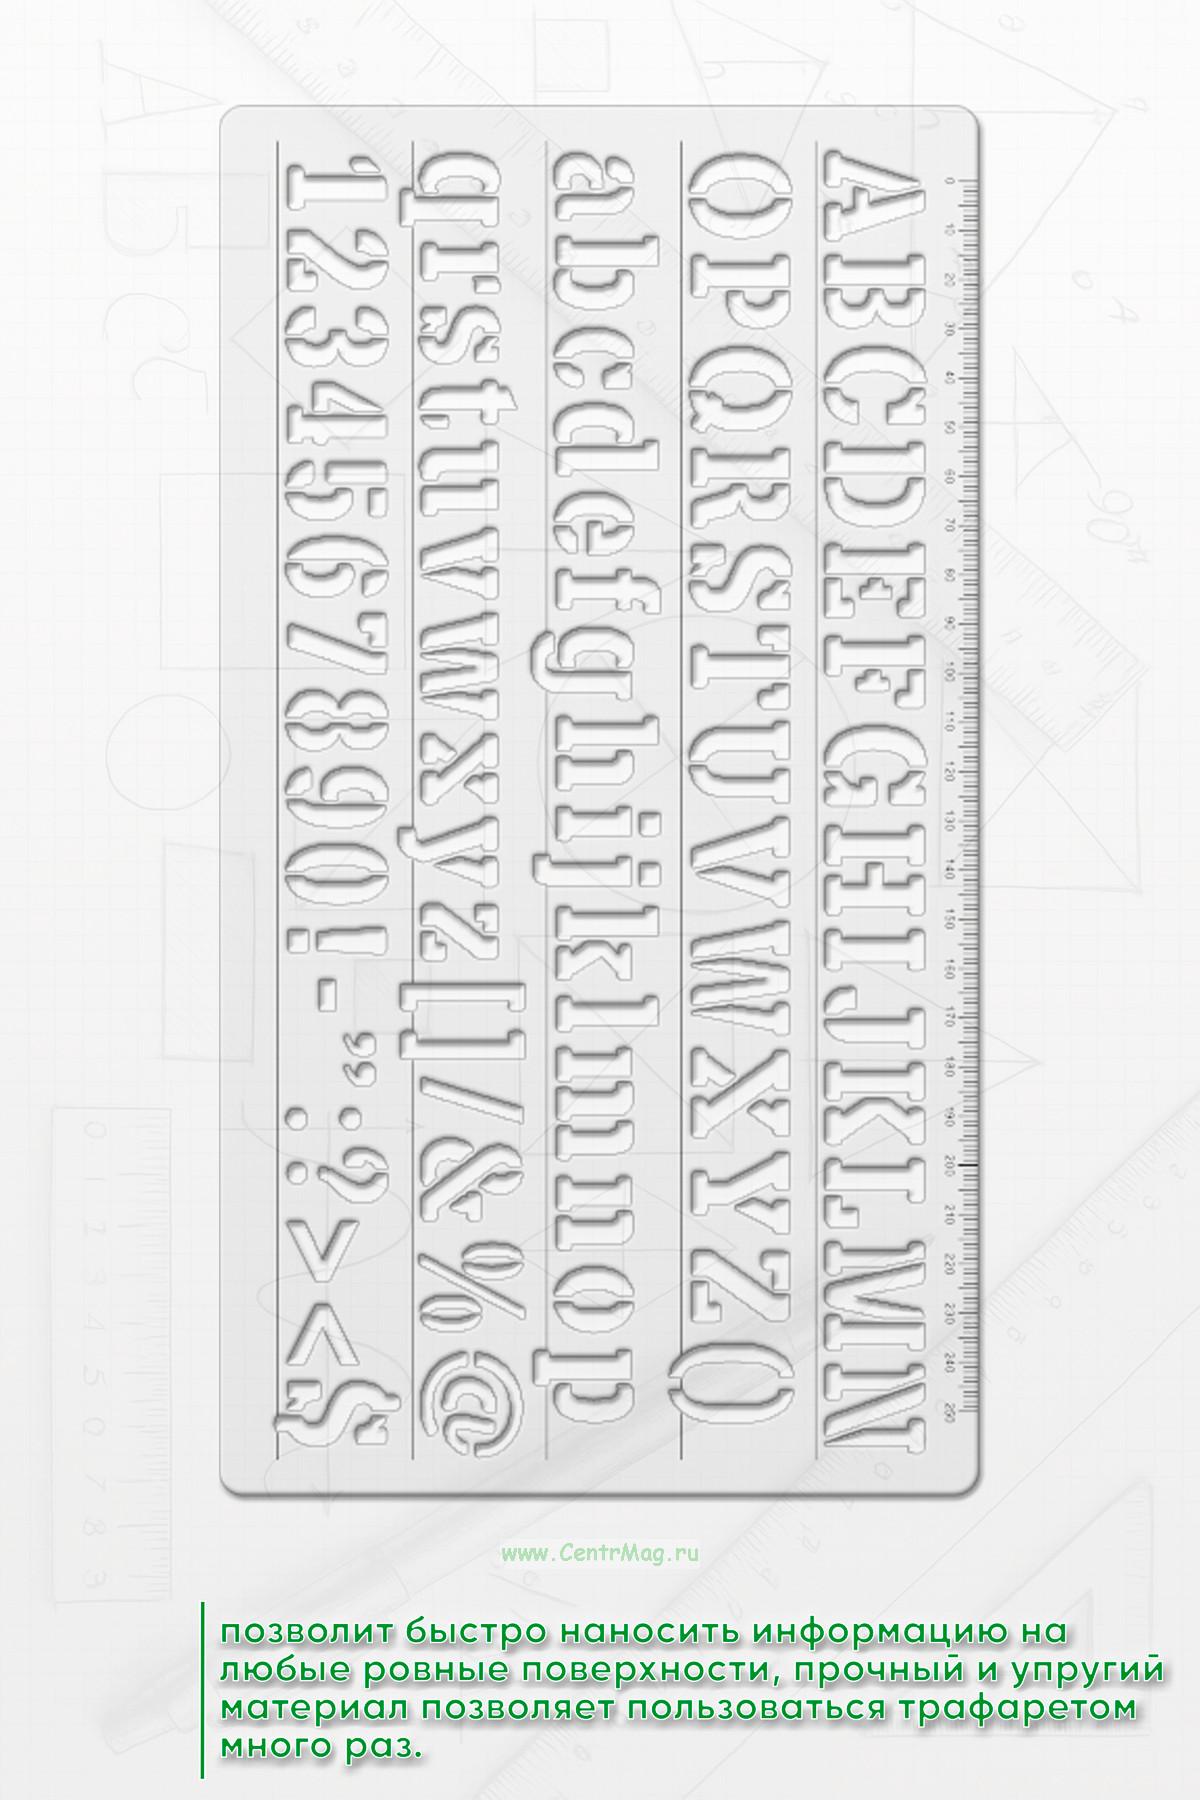 0 10 20 30 40 50 60 70 80 90 100 110 120 130 140 150 160 170 180 190 200 210 220 230 240 250
ABCDEFGHIJKLMN
OPQRSTUVWXYZ()
abcdefghijklmnop
qrstuvwxyz[]/&%@
1234567890!-“:;?<>$
www.CentrMag.ru
позволит быстро наносить информацию на
любые ровные поверхности, прочный и упругий
материал позволяет пользоваться трафаретом
много раз.